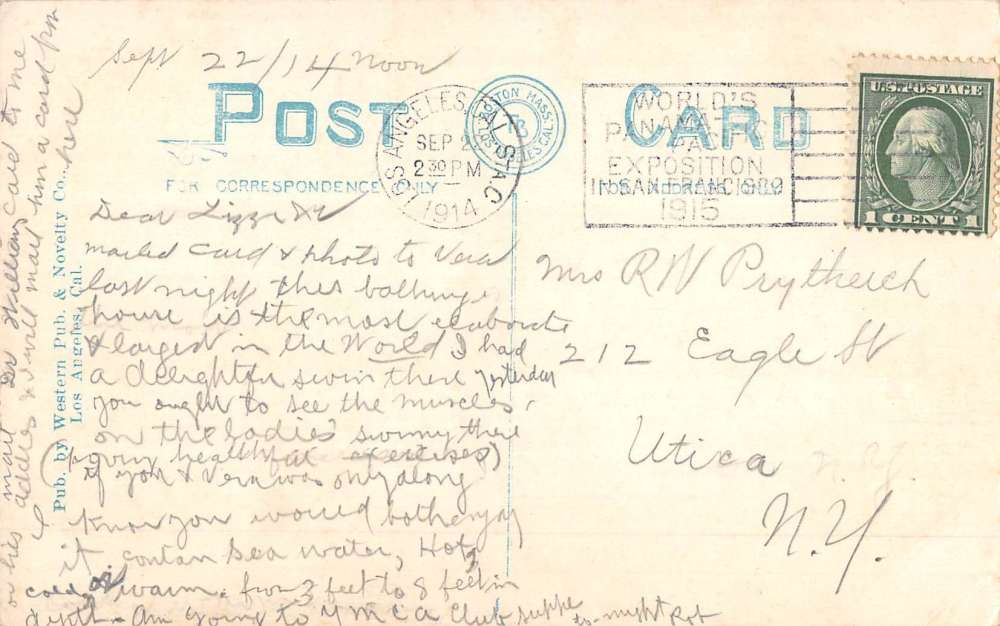 Sept 22/14 Noon
POST CARD
FOR CORRESPONDENCE ONLY
LOS ANGELES, CAL. S.A.C.
SEP 2
2 30 PM
1914
WORLD'S
PANAMA
PAC
EXPOSITION
IN SAN FRANCISCO
1915
U.S. POSTAGE
1 CENT 1
Pub. by Western Pub. & Novelty Co.,
Los Angeles, Cal.
Dear Lizzie
mailed card & photo to Vera
last night this bathing
house is the most elaborate
& largest in the World I had
a delightful swim there yesterday
you ought to see the muscles
on the ladies swimming there
(very healthful exercises)
if you & Vera was only along
Know you would both enjoy
it contain sea water, Hot,
cold, or warm. from 3 feet to 8 feet in
depth. Am going to YMCA Club supper to-night Rob
mail Dr Williams card to me
address & I will mail him a card from
here
Mrs R W Prytherch
212 Eagle St
Utica
N.Y.